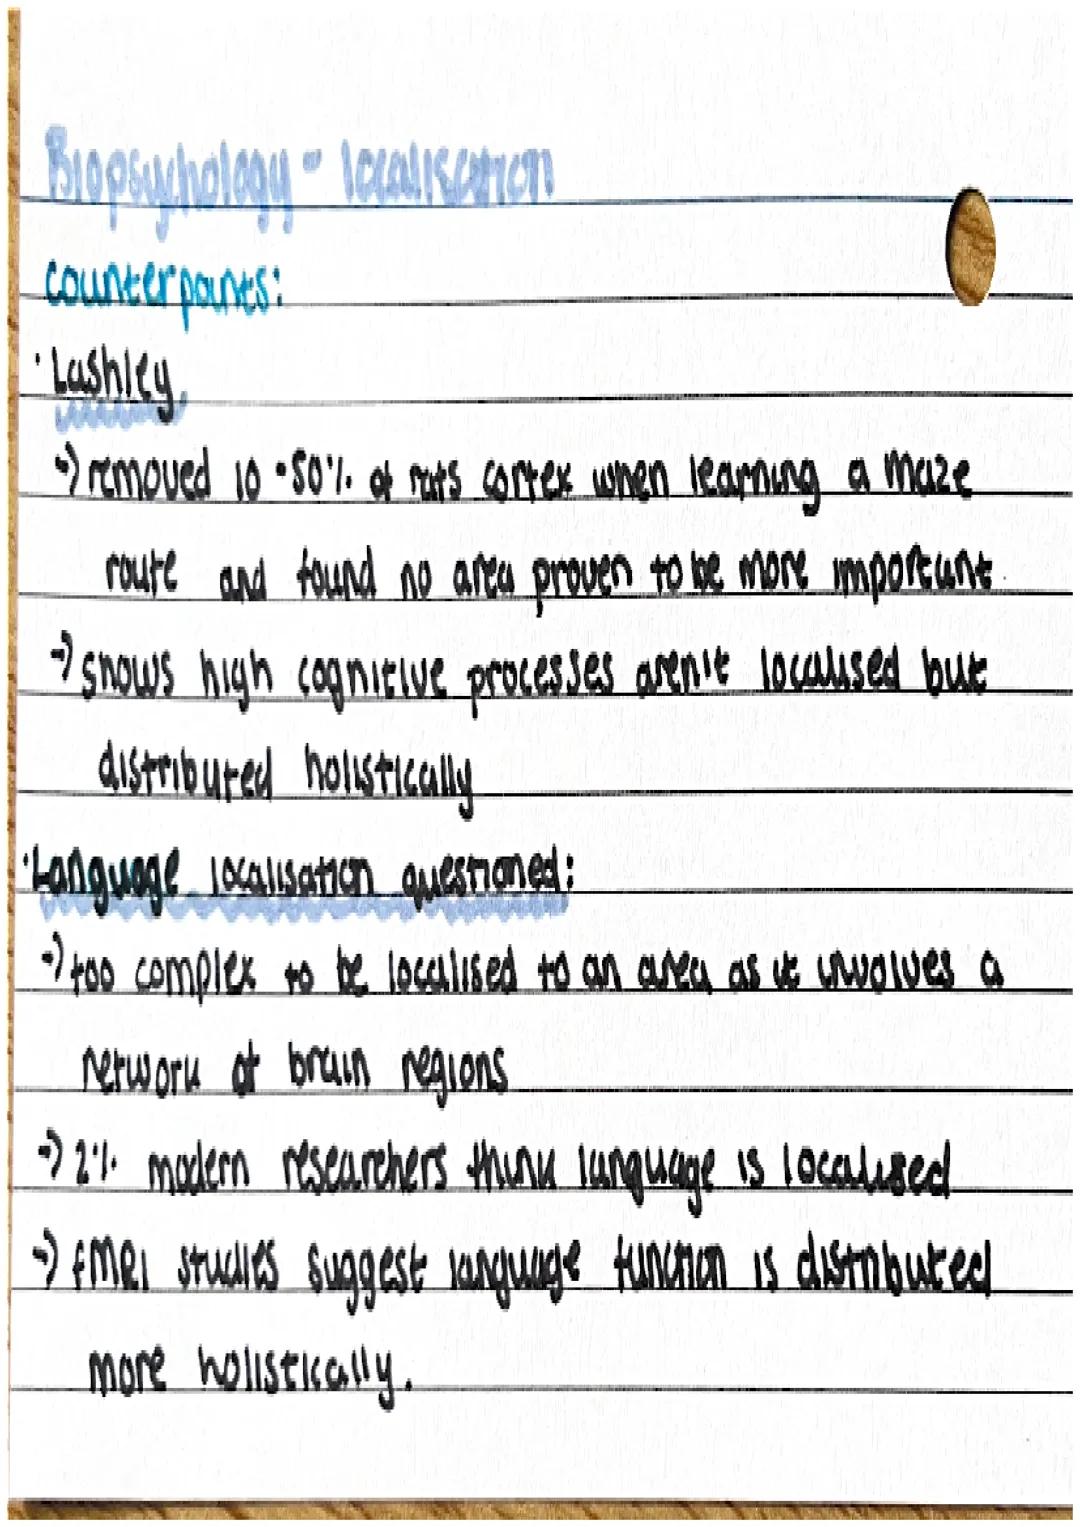 Biopsychology - localisation
counterpoints:
· Lashley
→ removed 10-50% of rats cortex when learning a maze
route and found no area proven to be more important
→ shows high cognitive processes aren't localised but
distributed holistically
· Language localisation questioned:
→ too complex to be localised to an area as it involves a
network of brain regions
→ 2% modern researchers think language is localised
→ fMRI studies suggest language function is distributed
more holistically.